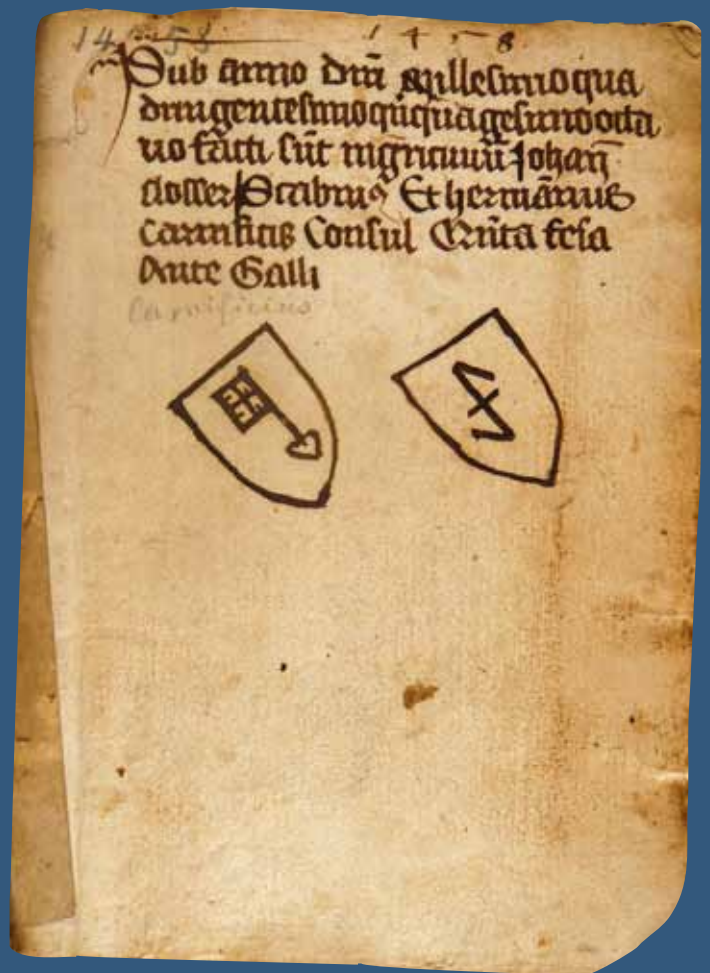 1458 1458
Sub anno dm̄ millesimo qua
dringentesimo qūquagesimo octa
uo facti sūt mgri ciuiū Johan̄
closser Scabinꝰ Et hermānus
Carnificis Consul Qūīta feīa
Ante Galli